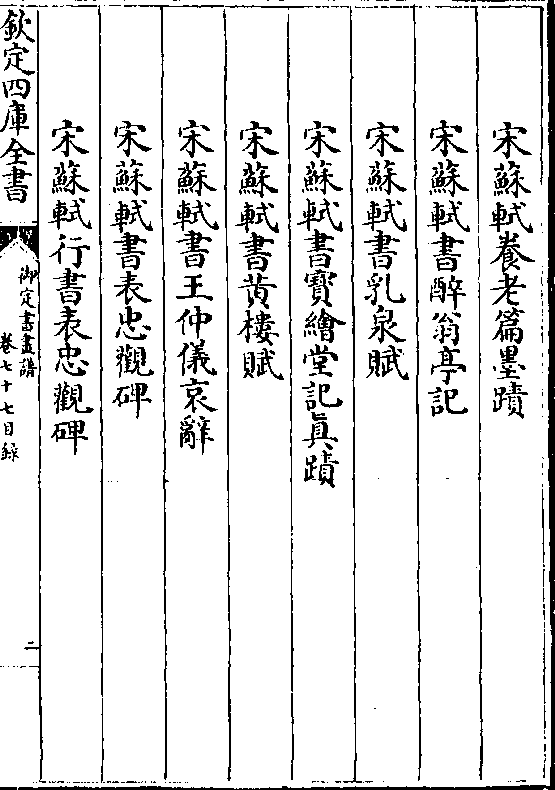 宋蘇軾養老篇墨蹟
宋蘇軾書醉翁亭記
宋蘇軾書乳泉賦
宋蘇軾書寳繪堂記真蹟
宋蘇軾書黄樓賦
宋蘇軾書王仲儀哀辭
宋蘇軾書表忠觀碑
宋蘇軾行書表忠觀碑
欽定四庫全書
御定書畫譜
卷七十七目録
二